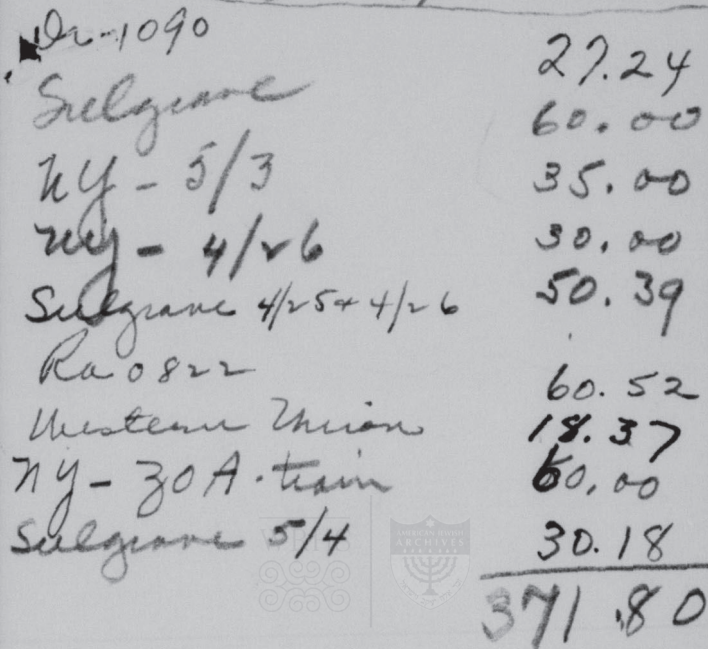 Di-1090 27.24
Sulgrave 60.00
NY - 5/3 35.00
NY - 4/26 30.00
Sulgrave 4/25 + 4/26 50.39
Ra 0822 60.52
Western Union 18.37
NY - ZOA - train 60.00
Sulgrave 5/4 30.18
371.80
AMERICAN JEWISH
ARCHIVES